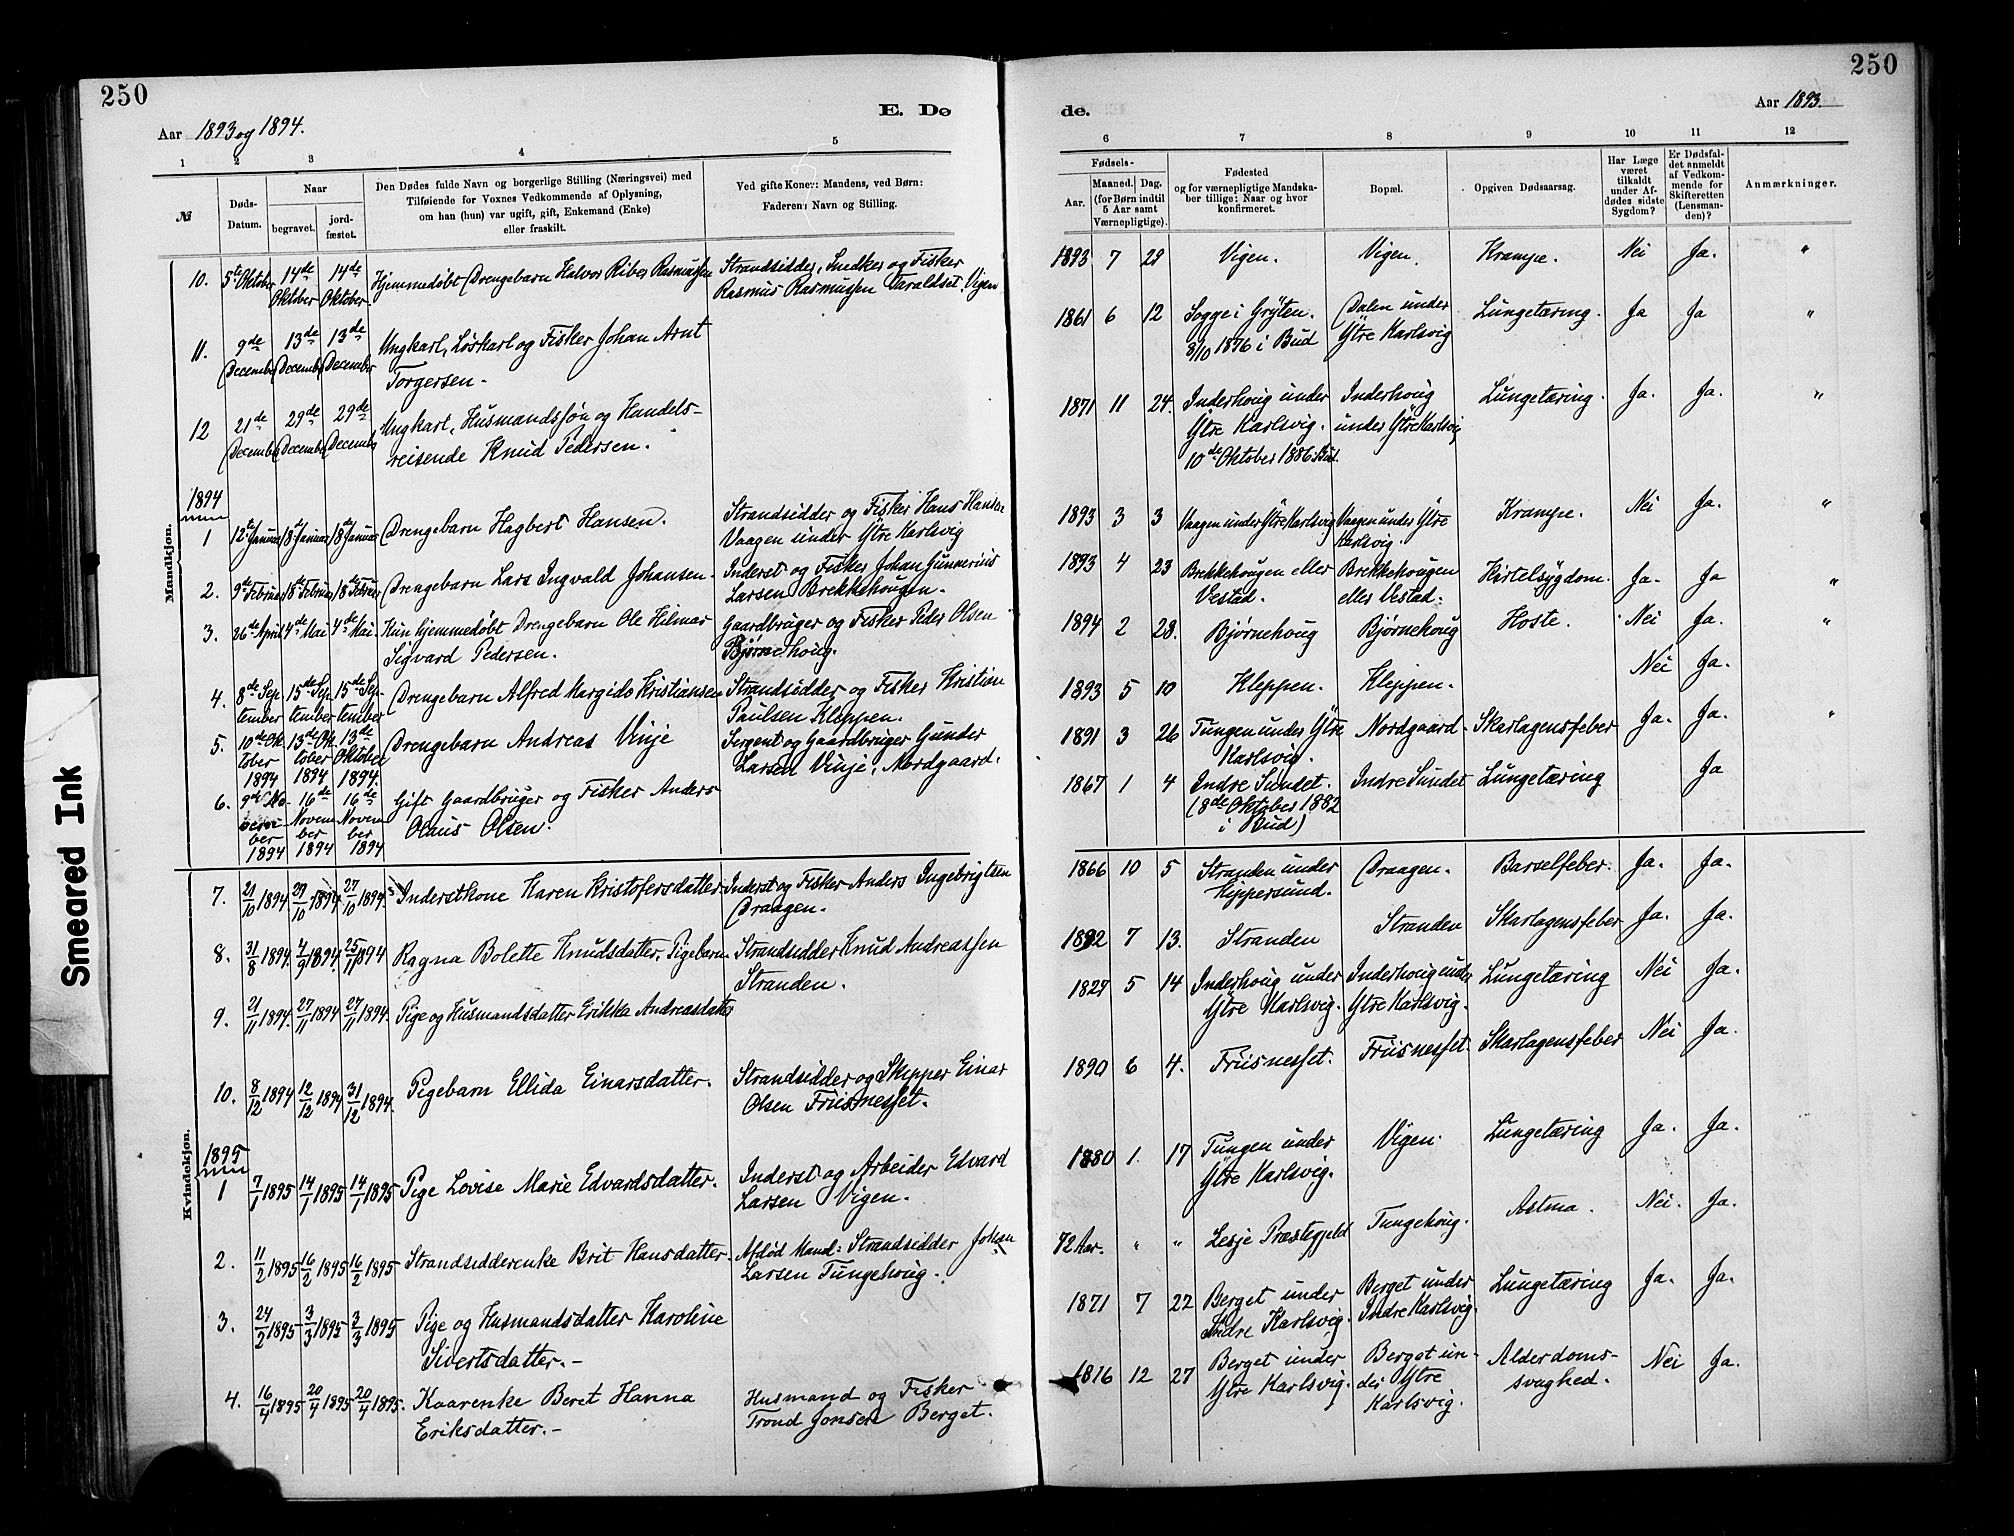 250
Aar 1893 og 1894.
E. Dø
1 2 3 4 5
№
Døds-Datum.
Naar
begravet.
jord-fæstet.
Den Dødes fulde Navn og borgerlige Stilling (Næringsvei) med
Tilføiende for Voxnes Vedkommende af Oplysning,
om han (hun) var ugift, gift, Enkemand (Enke)
eller fraskilt.
Ved gifte Koner: Mandens, ved Børn:
Faderens Navn og Stilling.
Mandkjøn.
10. 5te Oktober 14de Oktober 14de Oktober Hjemmedøbt Drengebarn Halvor Riber Rasmussen Strandsidder, Snedker og Fisker
Rasmus Rasmussen Taraldset, Vigen
11. 9de December 13de December 13de December Ungkarl, Løskarl og Fisker Johan Arnt
Torgersen.
12 21de December 29de December 29de December Ungkarl, Husmandssøn og Handels-
reisende Knud Pedersen.
1894
1 12te Januar 18de Januar 18de Januar Drengebarn Hagbert Hansen. Strandsidder og Fisker Hans Hansen
Vaagen under Ytre Karlsvig
2. 9de Februar 18de Februar 18de Februar Drengebarn Lars Ingvald Johansen. Inderst og Fisker Johan Gunnerius
Larsen Brekkehougen.
3. 26de April 4de Mai 4de Mai Kun hjemmedøbt Drengebarn Ole Hilmar
Sigvard Pedersen.
Gaardbruger og Fisker Peder Olsen
Bjørnehoug.
4. 8de September 15de September 15de September Drengebarn Alfred Margido Kristiansen Strandsidder og Fisker Kristian
Paulsen Kleppen.
5. 10de Oktober 1894 13de Oktober 1894 13de Oktober 1894. Drengebarn Andreas Vinje Sergent og Gaardbruger Gunder
Larsen Vinje, Nordgaard.
6. 9de November 1894 16de November 1894 16de November 1894 Gift Gaardbruger og Fisker Anders
Olaus Olsen.
Kvindekjøn.
7. 21/10 1894 27/10 1894 27/10 1894. Inderstkone Karen Kristofersdatter Inderst og Fisker Anders Ingebrigtsen
Draagen.
8. 31/8 1894. 4/9 1894 25/11 1894 Ragna Bolette Knudsdatter, Pigebarn Strandsidder Knud Andreassen
Stranden.
9. 21/11 1894. 27/11 1894 27/11 1894. Pige og Husmandsdatter Erikka Andreasdatter
10. 8/12 1894 12/12 1894 31/12 1894. Pigebarn Ellida Einarsdatter. Strandsidder og Skipper Einar
Olsen Friisnesset.
1895
1 7/1 1895 14/1 1895 14/1 1895 Pige Lovise Marie Edvardsdatter. Inderst og Arbeider Edvard
Larsen Vigen.
2. 11/2 1895 16/2 1895 16/2 1895 Strandsidderenke Brit Hansdatter. Afdød Mand: Strandsidder Johan
Larsen Tungehoug.
3. 24/2 1895 3/3 1895 3/3 1895 Pige og Husmandsdatter Karoline
Sivertsdatter.
4. 16/4 1895 20/4 1895 20/4 1895. Kaarenke Beret Hanna
Eriksdatter.
Husmand og Fisker
Trond Jonsen Berget.
Smeared Ink
250
de.
Aar 1893
6 7 8 9 10 11 12
Fødsels-
Aar.
Maaned. Dag.
(for Børn indtil
5 Aar samt
Værnepligtige).
Fødested
og for værnepligtige Mandska-
ber tillige: Naar og hvor
konfirmeret.
Bopæl.
Opgiven Dødsaarsag.
Har Læge
været
tilkaldt
under Af-
dødes sidste
Sygdom?
Er Dødsfal-
det anmeldt
af Vedkom-
mende for
Skifteretten
(Lensman-
den)?
Anmærkninger.
1893 7 29 Vigen. Vigen. Krampe. Nei Ja. "
1861 6 12 Sogge i Grytten.
8/10 1876 i Bud
Dalen under
Ytre Karlsvig
Lungetæring. Ja Ja "
1871 11 24. Inderhoug under
Ytre Karlsvig.
10de Oktober 1886 Bud.
Inderhoug
under Ytre Karlsvig
Lungetæring. Ja. Ja. "
1893 3 3 Vaagen under Ytre Karlsvig Vaagen under Ytre
Karlsvig.
Krampe. Nei Ja. "
1893 4 23 Brekkehougen eller
Vestad.
Brekkehougen
eller Vestad.
Kirtelsygdom. Ja. Ja "
1894 2 28. Bjørnehoug Bjørnehoug Hoste. Nei Ja. "
1893 5 10 Kleppen. Kleppen. Nei Ja.
1891 3 26 Tungen under Ytre
Karlsvig.
Nordgaard. Skarlagensfeber Ja. Ja. "
1867 1 4 Indre Sundet.
(8de Oktober 1882
i Bud)
Indre Sundet Lungetæring Ja
1866 10 5 Stranden under
Heppersund.
Draagen. Barselfeber. Ja. Ja.
1892 7 13. Stranden Stranden Skarlagensfeber Ja. Ja.
1827 5 14 Inderhoug under
Ytre Karlsvig.
Inderhoug under
Ytre Karlsvig.
Lungetæring Nei Ja.
1890 6 4. Friisnesset. Friisnesset. Skarlagensfeber Nei Ja.
1880 1. 17 Tungen under
Ytre Karlsvig.
Vigen. Lungetæring Ja. Ja.
72 Aar. " " Lesje Præstegjeld Tungehoug. Astma. Nei. Ja.
1871 7 22 Berget under
Indre Karlsvig.
Berget under
Indre Karlsvig.
Lungetæring Ja. Ja.
1816 12 27 Berget under
Ytre Karlsvig.
Berget un-
der Ytre
Karlsvig.
Alderdoms-
svaghed.
Nei Ja.